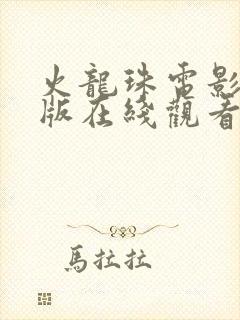 火龍珠電影
版在綫觀看
馬拉拉